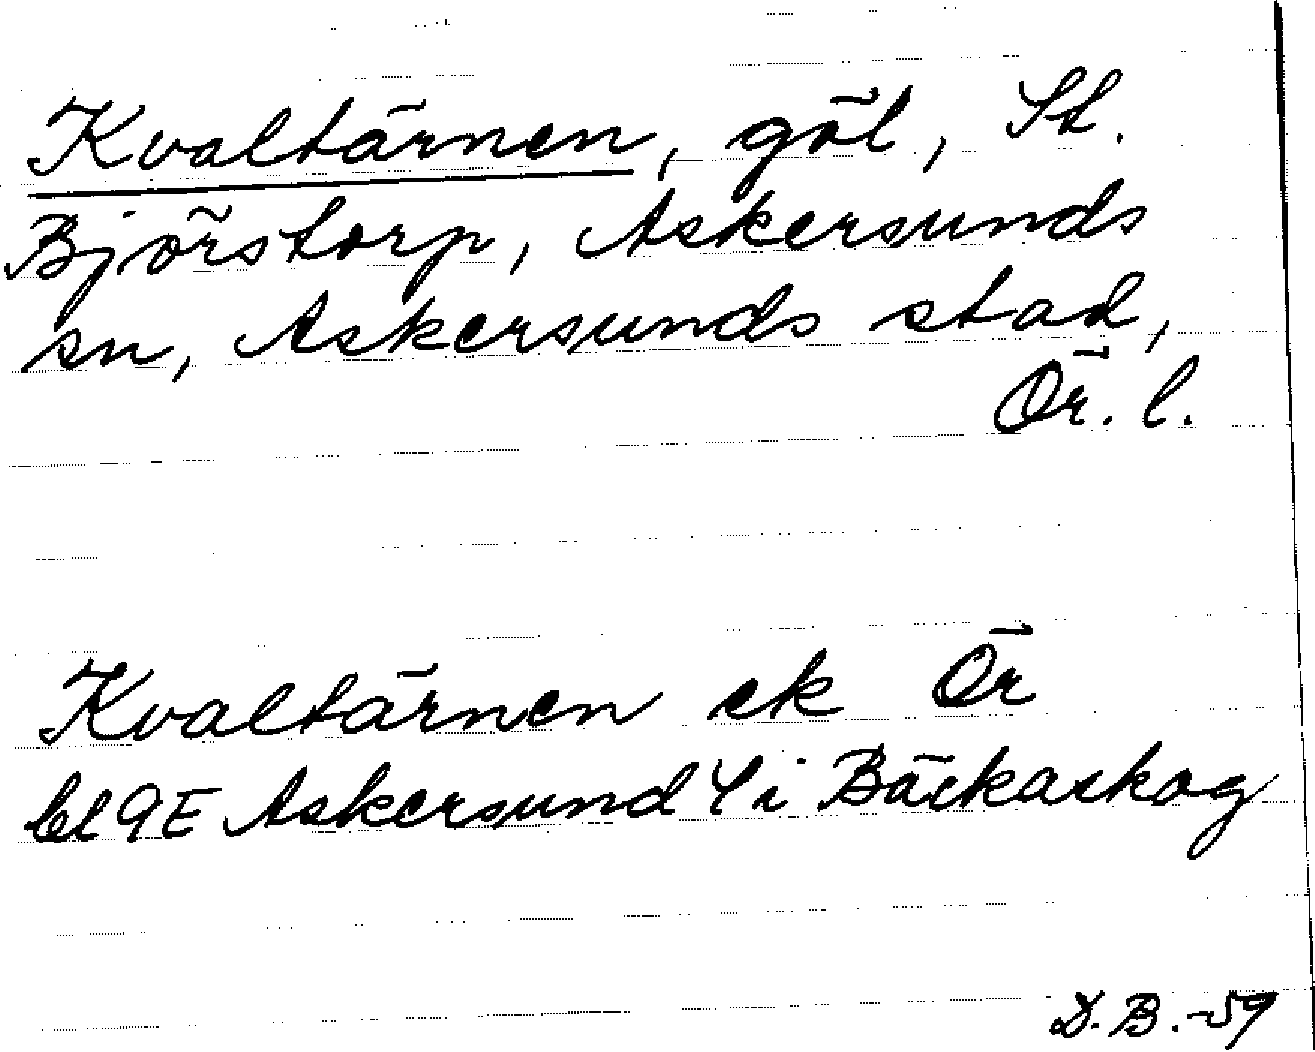 Kvaltärnen, göl, St.
Björstorp, Askersunds
sn, Askersunds stad,
Ör. l.
Kvaltärnen ek Ör
bl 9E Askersund 4 i Bäckaskog
D.B.-59